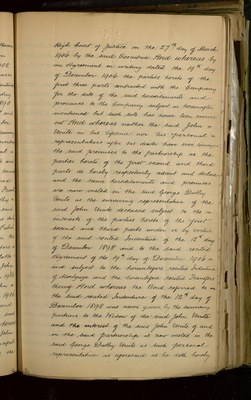 High Court of Justice on the 27th day of March
1906 by the said Goodman Herd whereas by
an Agreement in writing dated the 19th day
of December 1906 the parties hereto of the
first three parts contracted with the Company
for the sale of the said hereditaments and
premises to the Company subject as hereinafter
mentioned but such sale has never been carried
out And whereas neither the said John
White in his lifetime nor his personal
representatives after his death have ever conveyed
the said premises to the partnership as the
parties hereto of the first second and third
parts do hereby respectively admit and declare
and the same hereditaments and premises
are now vested in the said George Dudley
White as the surviving representative of the
said John White deceased subject to the
interests of the parties hereto of the first
second and third parts under or by virtue
of the said recited Indenture of the 12th day
of December 1898 and to the said recited
Agreement of the 19th day of December 1906
and subject to the hereinbefore recited Indenture
of Mortgage and the hereinbefore recited Transfers
thereof And whereas the Bond referred to in
the said recited Indenture of the 12th day of
December 1898 was never given by the surviving
partners to the Widow of the said John White
and the interest of the said John White of and
in the said partnership is now vested in the
said George Dudley White as such personal
representative as aforesaid as he doth hereby